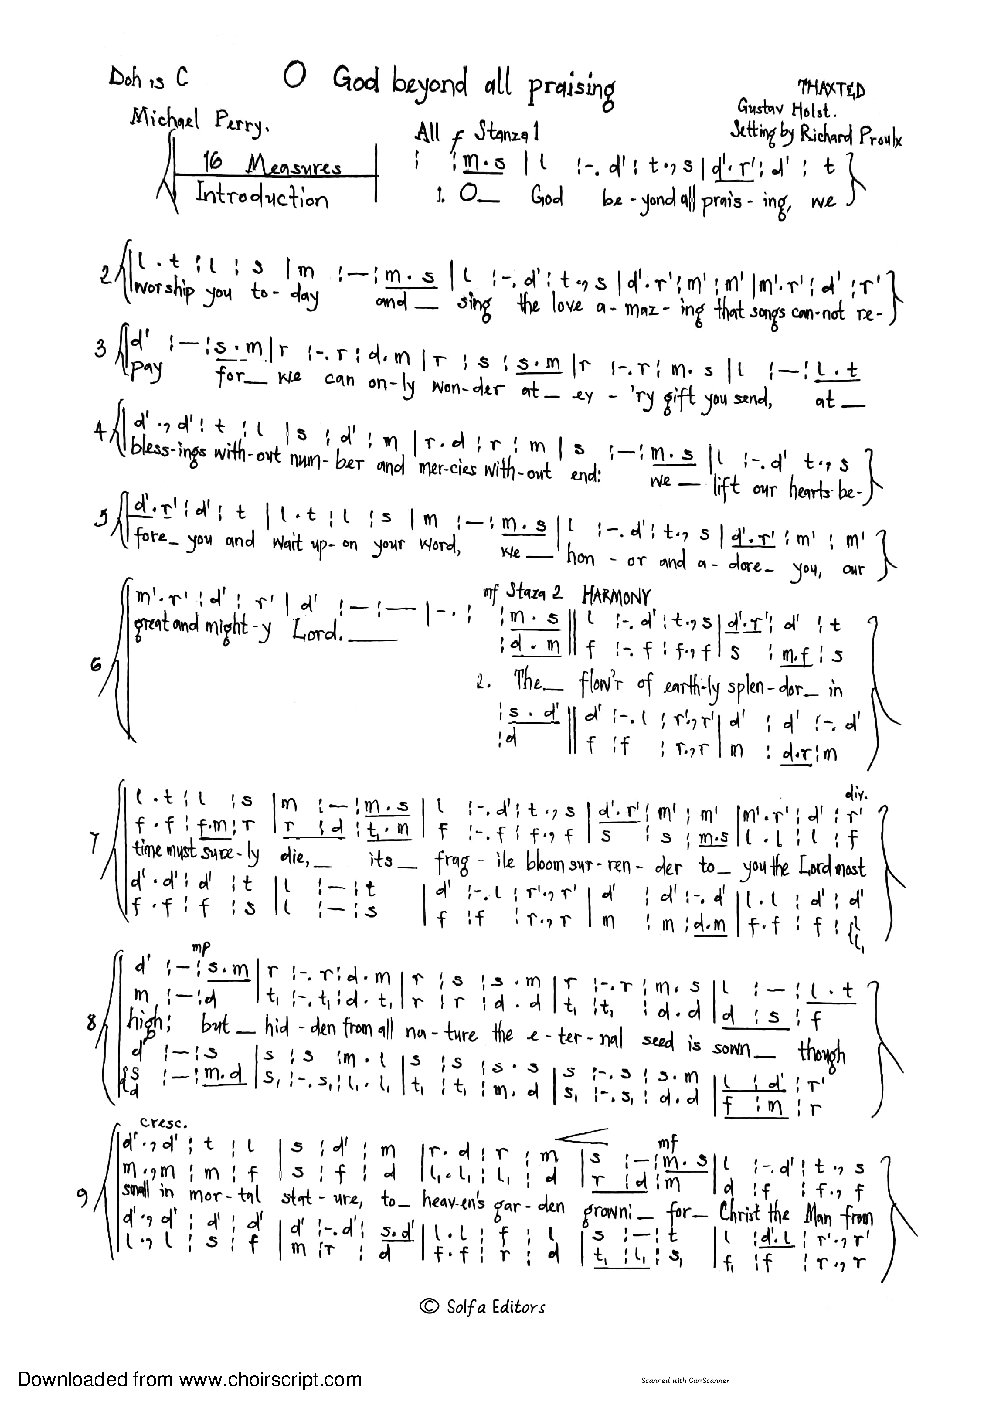 Doh is C
O God beyond all praising
THAXTED
Gustav Holst.
Michael Perry.
Setting by Richard Proulx
All f Stanza 1
16 Measures
Introduction
: :m.s | l :-. d' : t ., s | d'. r' : d' : t
1. O_ God be-yond all prais-ing, we
2 l . t : l : s | m :—: m . s | l :-. d' : t ., s | d'. r' : m' : m' | m'. r' : d' : r'
worship you to-day and_ sing the love a-maz-ing that songs can-not re-
3 d' :—: s . m | r :-. r : d . m | r : s : s . m | r :-. r : m . s | l :—: l . t
pay for_ we can on-ly won-der at_ ey-'ry gift you send, at_
4 d' ., d' : t : l | s : d' : m | r . d : r : m | s :—: m . s | l :-. d' t ., s
bless-ings with-out num-ber and mer-cies with-out end: we_ lift our hearts be-
5 d'. r' : d' : t | l . t : l : s | m :—: m . s | l :-. d' : t ., s | d'. r' : m' : m'
fore_ you and wait up-on your word, we_ hon-or and a-dore_ you, our
6 m'. r' : d' : r' | d' :—:— | -. :
great and might-y Lord.____
mf Staza 2 HARMONY
: m . s || l :-. d' : t ., s | d'. r' : d' : t
: d . m || f :-. f : f ., f | s : m.f : s
2. The_ flow'r of earth-ly splen-dor_ in
: s . d' || d' :-. l : r' ., r' | d' : d' :-. d'
: d || f : f : r ., r | m : d.r : m
div.
7 l . t : l : s | m :—: m . s | l :-. d' : t ., s | d'. r' : m' : m' | m'. r' : d' : r'
f . f : f.m : r | r : d : t, . m | f :-. f : f ., f | s : s : m.s | l . l : l : f
time must sure-ly die,_ its_ frag-ile bloom sur-ren-der to_ you the Lord most
d' . d' : d' : t | l :—: t | d' :-. l : r' ., r' | d' : d' :-. d' | l . l : d' : d'
f . f : f : s | l :—: s | f : f : r ., r | m : m : d.m | f . f : f : l l,
mp
8 d' :—: s . m | r :-. r : d . m | r : s : s . m | r :-. r : m . s | l :—: l . t
m :—: d | t, :-. t, : d . t, | r : r : d . d | t, : t, : d . d | d : s : f
high; but_ hid-den from all na-ture the e-ter-nal seed is sown_ though
d' :—: s | s : s : m . l | s : s : s . s | s :-. s : s . m | l : d' : r'
s d :—: m . d | s, :-. s, : l, . l, | t, : t, : m . d | s, :-. s, : d . d | f : m : r
cresc. mf
9 d' ., d' : t : l | s : d' : m | r . d : r : m | s :—: m . s | l :-. d' : t ., s
m ., m : m : f | s : f : d | l, . l, : l, : d | r : d : m | d : f : f ., f
small in mor-tal stat-ure, to_ heaven's gar-den grown:_ for_ Christ the Man from
d' ., d' : d' : d' | d' :-. d' : s.d | l . l : f : l | s :—: t | l : d'.l : r' ., r'
l ., l : s : f | m : r : d | f . f : r : d | t, : l, : s, | f, : f : r ., r
© Solfa Editors
Downloaded from www.choirscript.com
Scanned with CamScanner